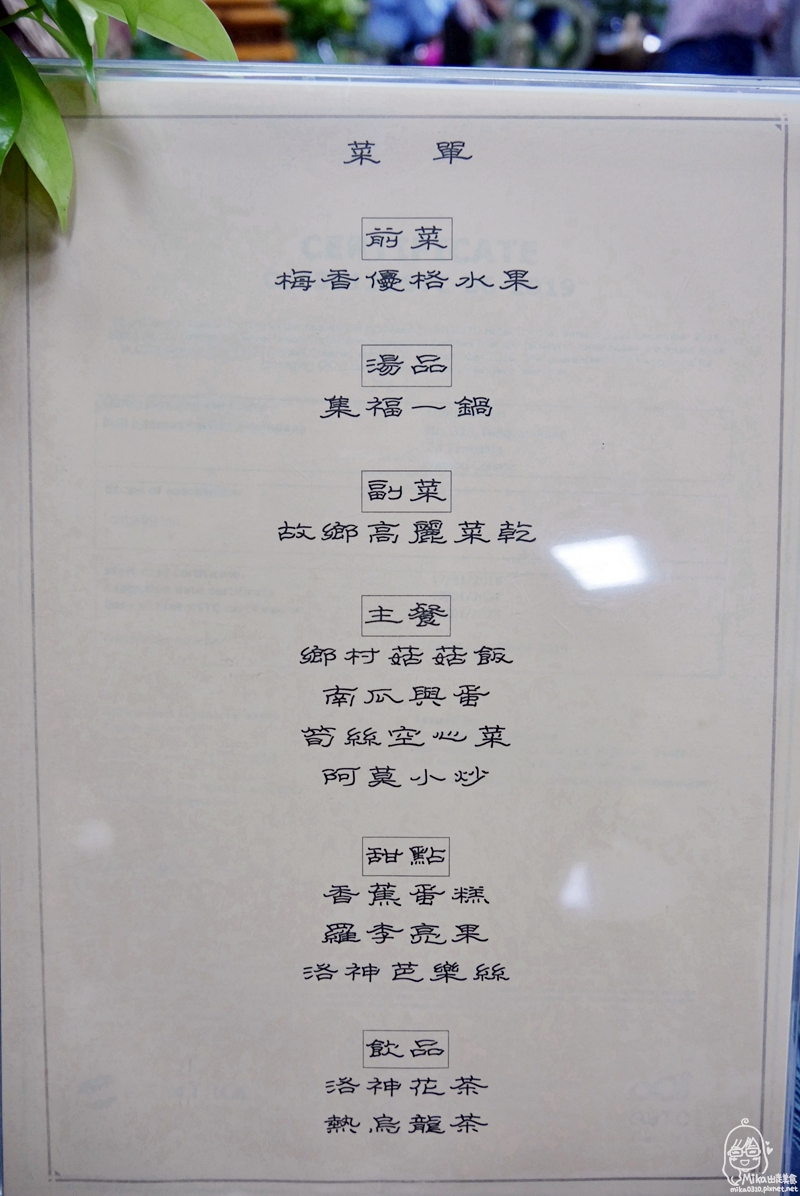 菜 單
前菜
梅香優格水果
湯品
集福一鍋
副菜
故鄉高麗菜乾
主餐
鄉村菇菇飯
南瓜與蛋
筍絲空心菜
阿莫小炒
甜點
香蕉蛋糕
羅李亮果
洛神芭樂絲
飲品
洛神花茶
熱烏龍茶
CERTIFICATE
Mika出走美食
mika0310.pixnet.net